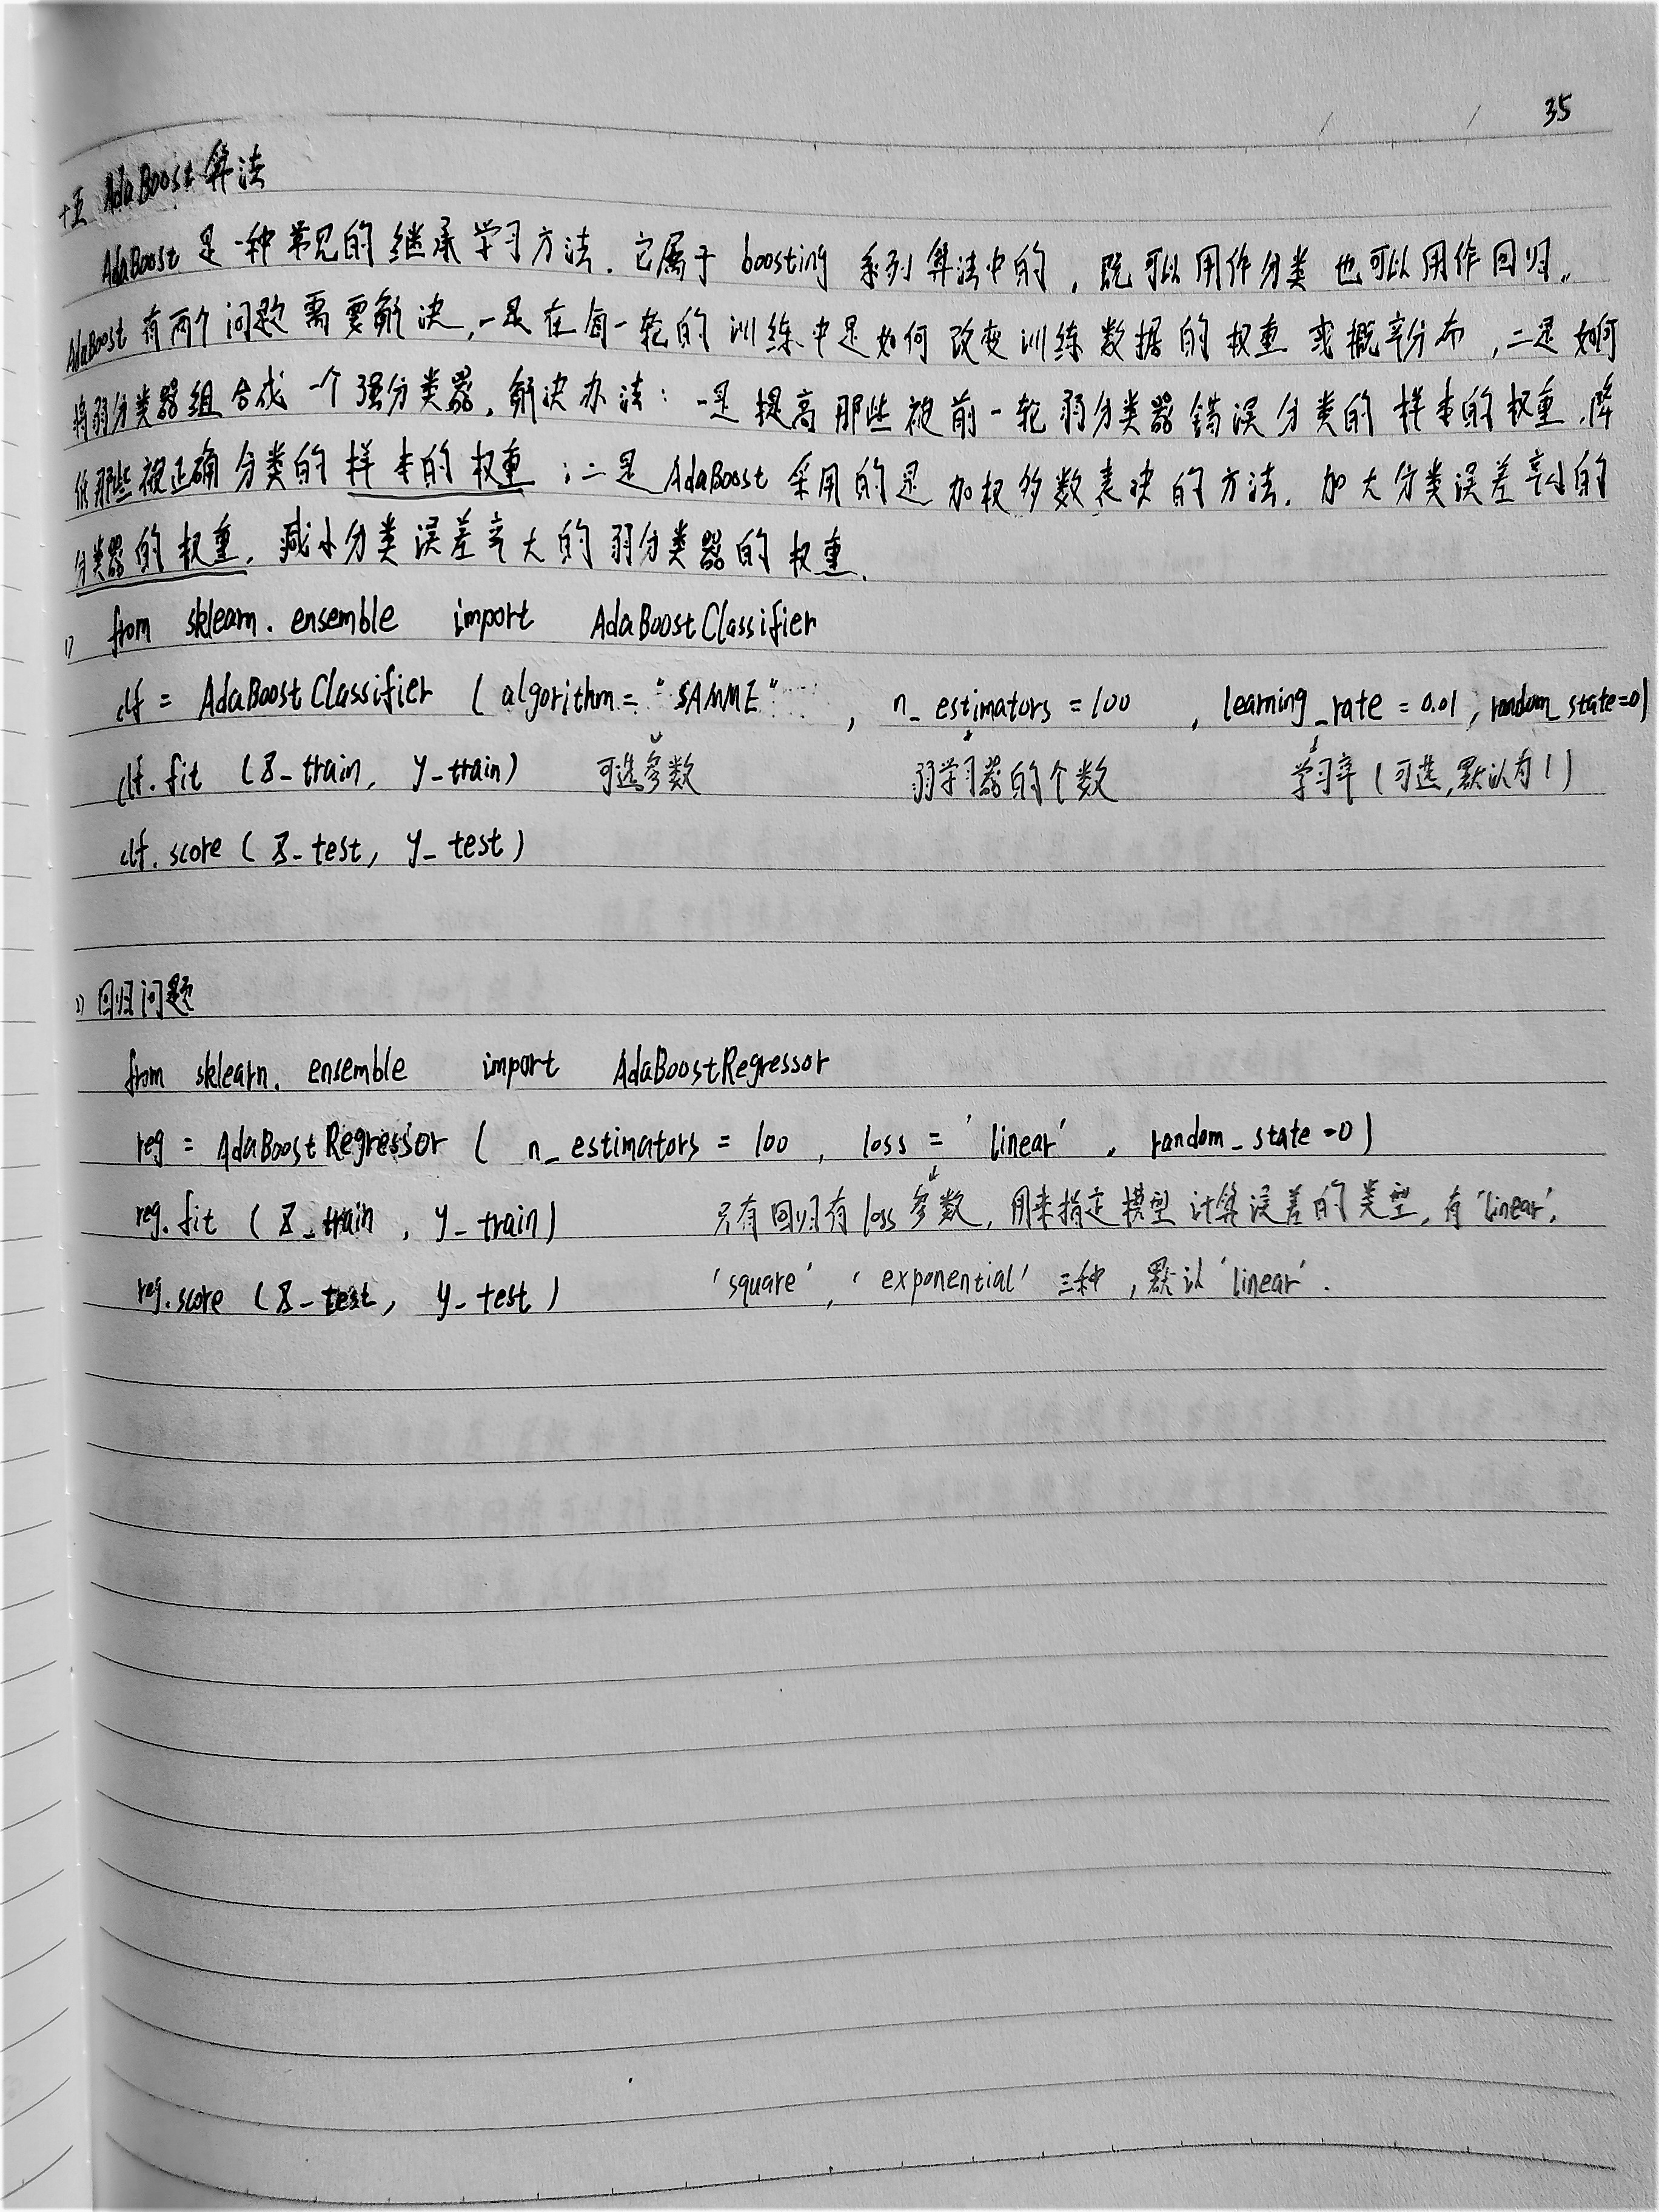 35
十五 AdaBoost 算法
AdaBoost 是一种常见的继承学习方法. 它属于 boosting 系列算法中的, 既可以用作分类也可以用作回归。
AdaBoost 有两个问题需要解决, 一是在每一轮的训练中是如何改变训练数据的权重或概率分布, 二是如何
将弱分类器组合成一个强分类器. 解决办法: 一是提高那些被前一轮弱分类器错误分类的样本的权重, 降
低那些被正确分类的样本的权重; 二是AdaBoost 采用的是加权多数表决的方法. 加大分类误差率小的
分类器的权重, 减小分类误差率大的弱分类器的权重.
1) from sklearn. ensemble import AdaBoostClassifier
clf = AdaBoostClassifier ( algorithm = "SAMME" , n_ estimators = 100 , learning_rate = 0.01 , random_state=0)
clf. fit (X_train, y_train) 可选参数 弱学习器的个数 学习率 (可选,默认为1)
clf. score ( X_test, y_test )
2) 回归问题
from sklearn. ensemble import AdaBoostRegressor
reg = AdaBoostRegressor ( n_ estimators = 100 , loss = 'linear' , random_state=0)
reg. fit ( X_train , y_train) 只有回归有loss参数, 用来指定模型计算误差的类型, 有'linear',
reg. score ( X_test, y_test ) 'square', 'exponential' 三种, 默认'linear'.